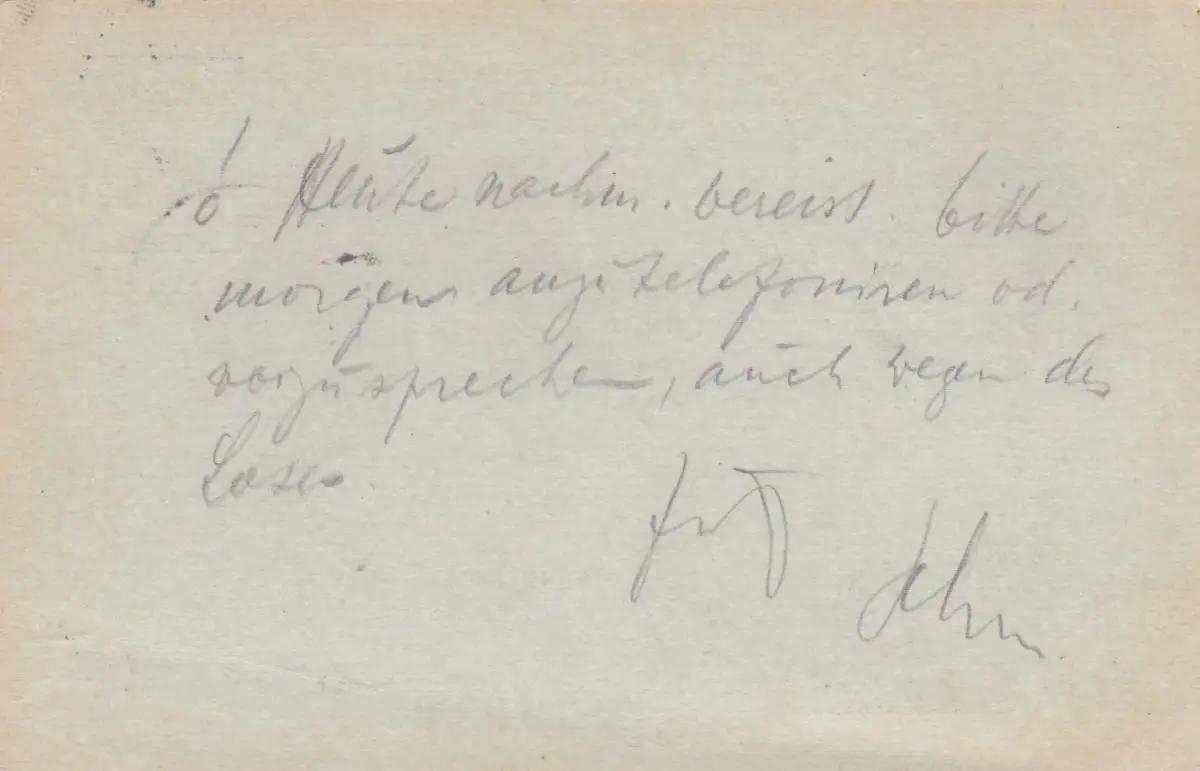 Heute nachm. vereist. bitte
morgen anzutelefoniren od.
vorzusprechen, auch wegen des
Loses.